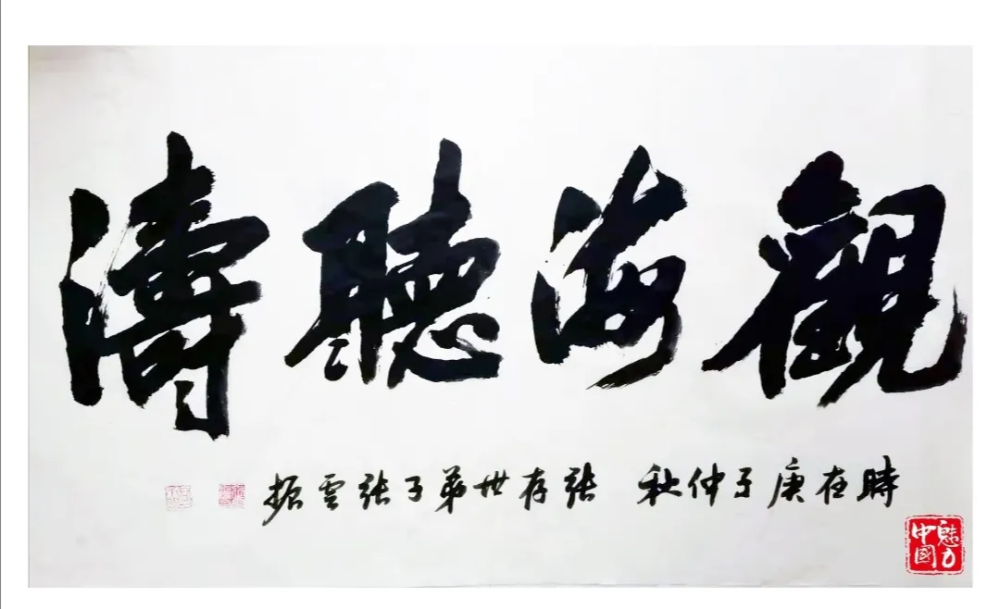 觀海聽濤
時在庚子仲秋 張存世弟子張雲振
魅力
中國